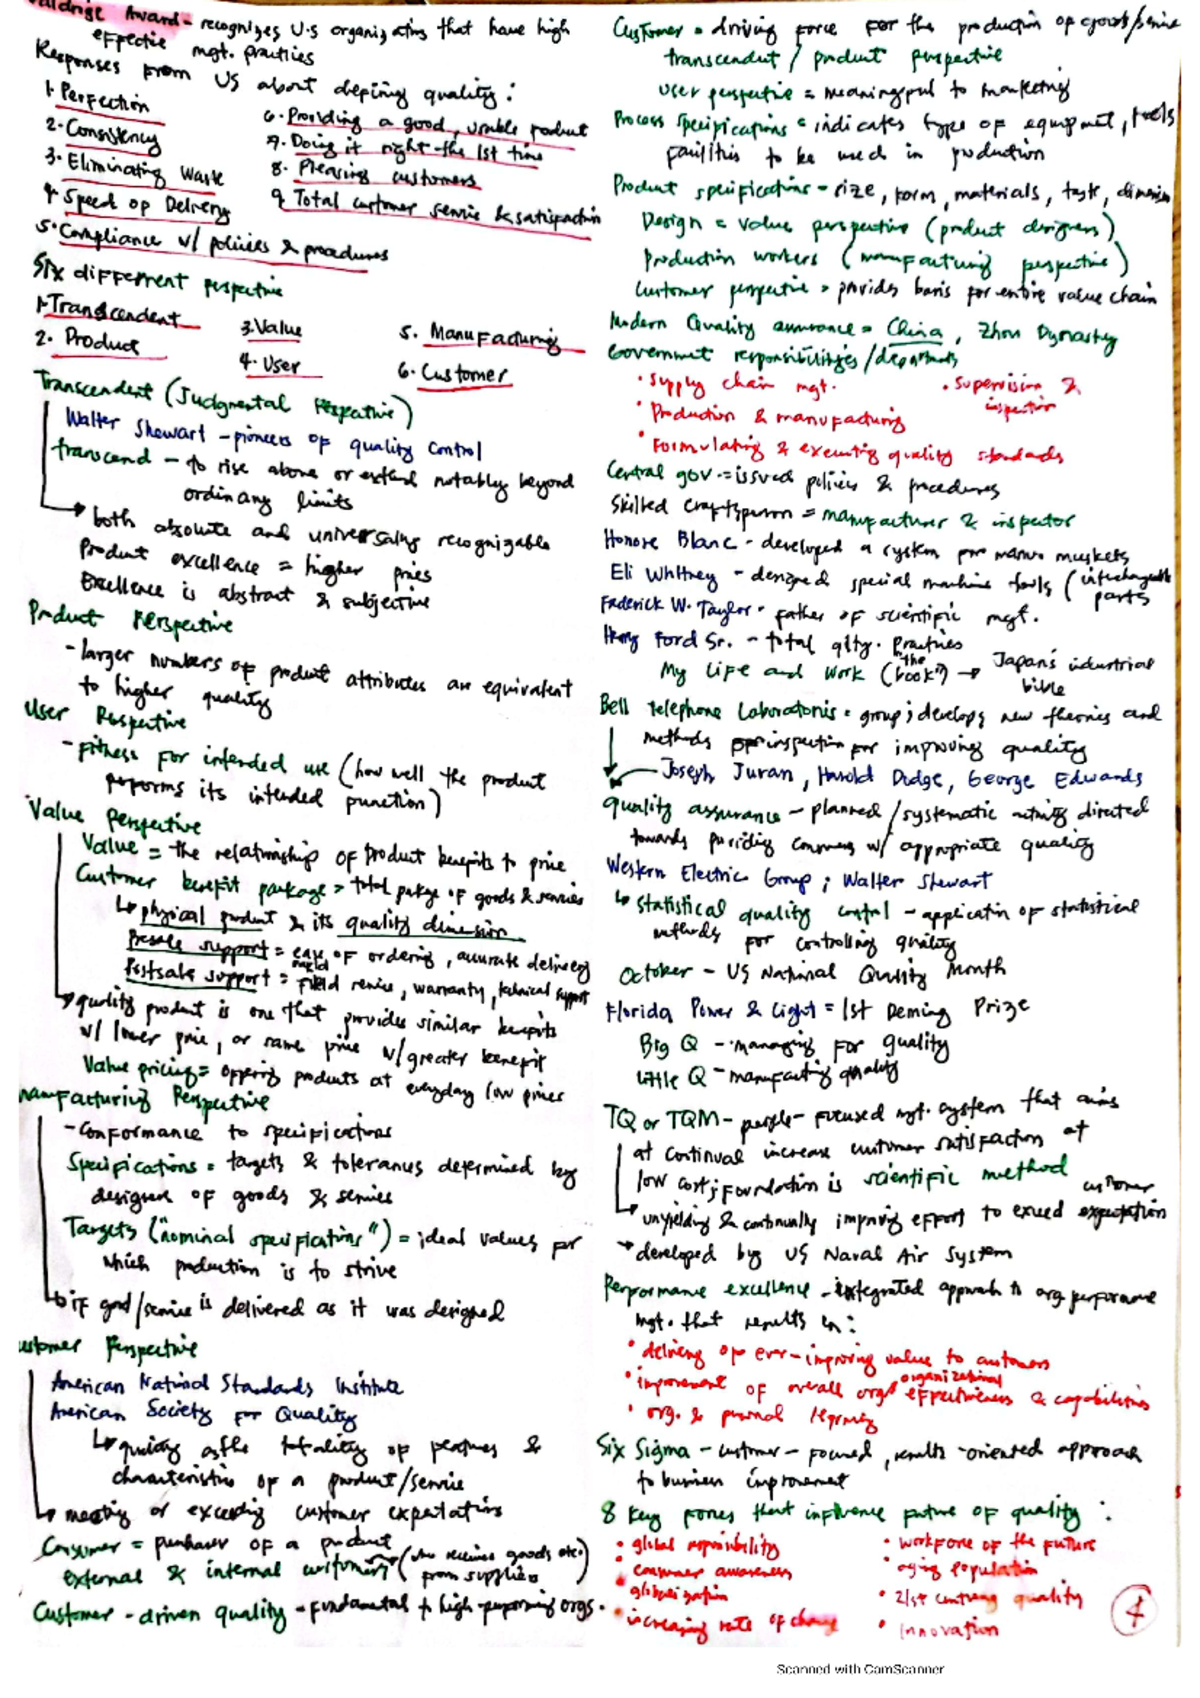 Award - recognizes U.S organizations that have high
effective mgt. practices
Responses from US about defining quality:
1. Perfection
2. Consistency
3. Eliminating Waste
4. Speed of Delivery
5. Compliance w/ policies & procedures
6. Providing a good, usable product
7. Doing it right the 1st time
8. Pleasing customers
9. Total customer service & satisfaction
Six different perspective
1. Transcendent
2. Product
3. Value
4. User
5. Manufacturing
6. Customer
Transcendent (Judgmental Perspective)
Walter Shewart - pioneers of quality control
transcend - to rise above or extend notably beyond
ordinary limits
both absolute and universally recognizable
Product excellence = higher prices
Excellence is abstract & subjective
Product Perspective
- larger numbers of product attributes are equivalent
to higher quality
User Perspective
- fitness for intended use (how well the product
performs its intended function)
Value Perspective
Value = the relationship of product benefits to price
Customer benefit package = total pckge of goods & services
physical product & its quality dimension
Presale support = ease of ordering, accurate delivery
Postsale support = field service, warranty, technical support
quality product is one that provides similar benefits
w/ lower price, or same price w/ greater benefit
Value pricing = offering products at everyday low prices
Manufacturing Perspective
- conformance to specifications
Specifications = targets & tolerances determined by
designers of goods & services
Targets ("nominal specifications") = ideal values for
which production is to strive
if good/service is delivered as it was designed
Customer Perspective
American National Standards Institute
American Society for Quality
quality as the totality of features &
characteristics of a product/service
meeting or exceeding customer expectations
Consumer = purchaser of a product
external & internal customers (who receives goods etc.
from suppliers)
Customer - driven quality - fundamental to high-performing orgs.
Customer = driving force for the production of goods/service
transcendent / product perspective
User perspective = meaningful to marketing
Process specifications = indicates type of equipment, tools
facilities to be used in production
Product specifications - size, form, materials, taste, dimension
Design = value perspective (product designers)
Production workers (manufacturing perspective)
Customer perspective = provides basis for entire value chain
Modern Quality assurance = China, Zhou Dynasty
Government responsibilities/departments
• Supply chain mgt.
• Production & manufacturing
• Formulating & executing quality standards
• Supervision &
inspection
Central gov. = issued policies & procedures
Skilled craftsperson = manufacturer & inspector
Honore Blanc - developed a system for manuf muskets
Eli Whitney - designed special machine tools (interchangeable
parts
Frederick W. Taylor - father of scientific mgt.
Henry Ford Sr. - total qlty. Practices
My Life and Work (the "book") → Japan's industrial
bible
Bell Telephone Laboratories = group; develops new theories and
methods for inspection for improving quality
Joseph Juran, Harold Dodge, George Edwards
quality assurance - planned/systematic activity directed
towards providing consumers w/ appropriate quality
Western Electric Group; Walter Shewart
Statistical quality control - application of statistical
methods for controlling quality
October - US National Quality Month
Florida Power & Light = 1st Deming Prize
Big Q - managing for quality
Little Q - manufacting quality
TQ or TQM - people-focused mgt. system that aims
at continual increase customer satisfaction at
low cost; foundation is scientific method
unyielding & continually improving effort to exceed customer expectation
developed by US Naval Air System
Performance excellence - integrated approach to org performance
mgt. that results in:
• delivery of ever-improving value to customers
• improvement of overall org'l organizational effectiveness & capabilities
• org. & personal learning
Six Sigma - customer - focused, results-oriented approach
to business improvement
8 key forces that influence future of quality:
• global responsibility
• consumer awareness
• globalization
• increasing rate of change
• workforce of the future
• aging population
• 21st century quality
• Innovation
4
Scanned with CamScanner